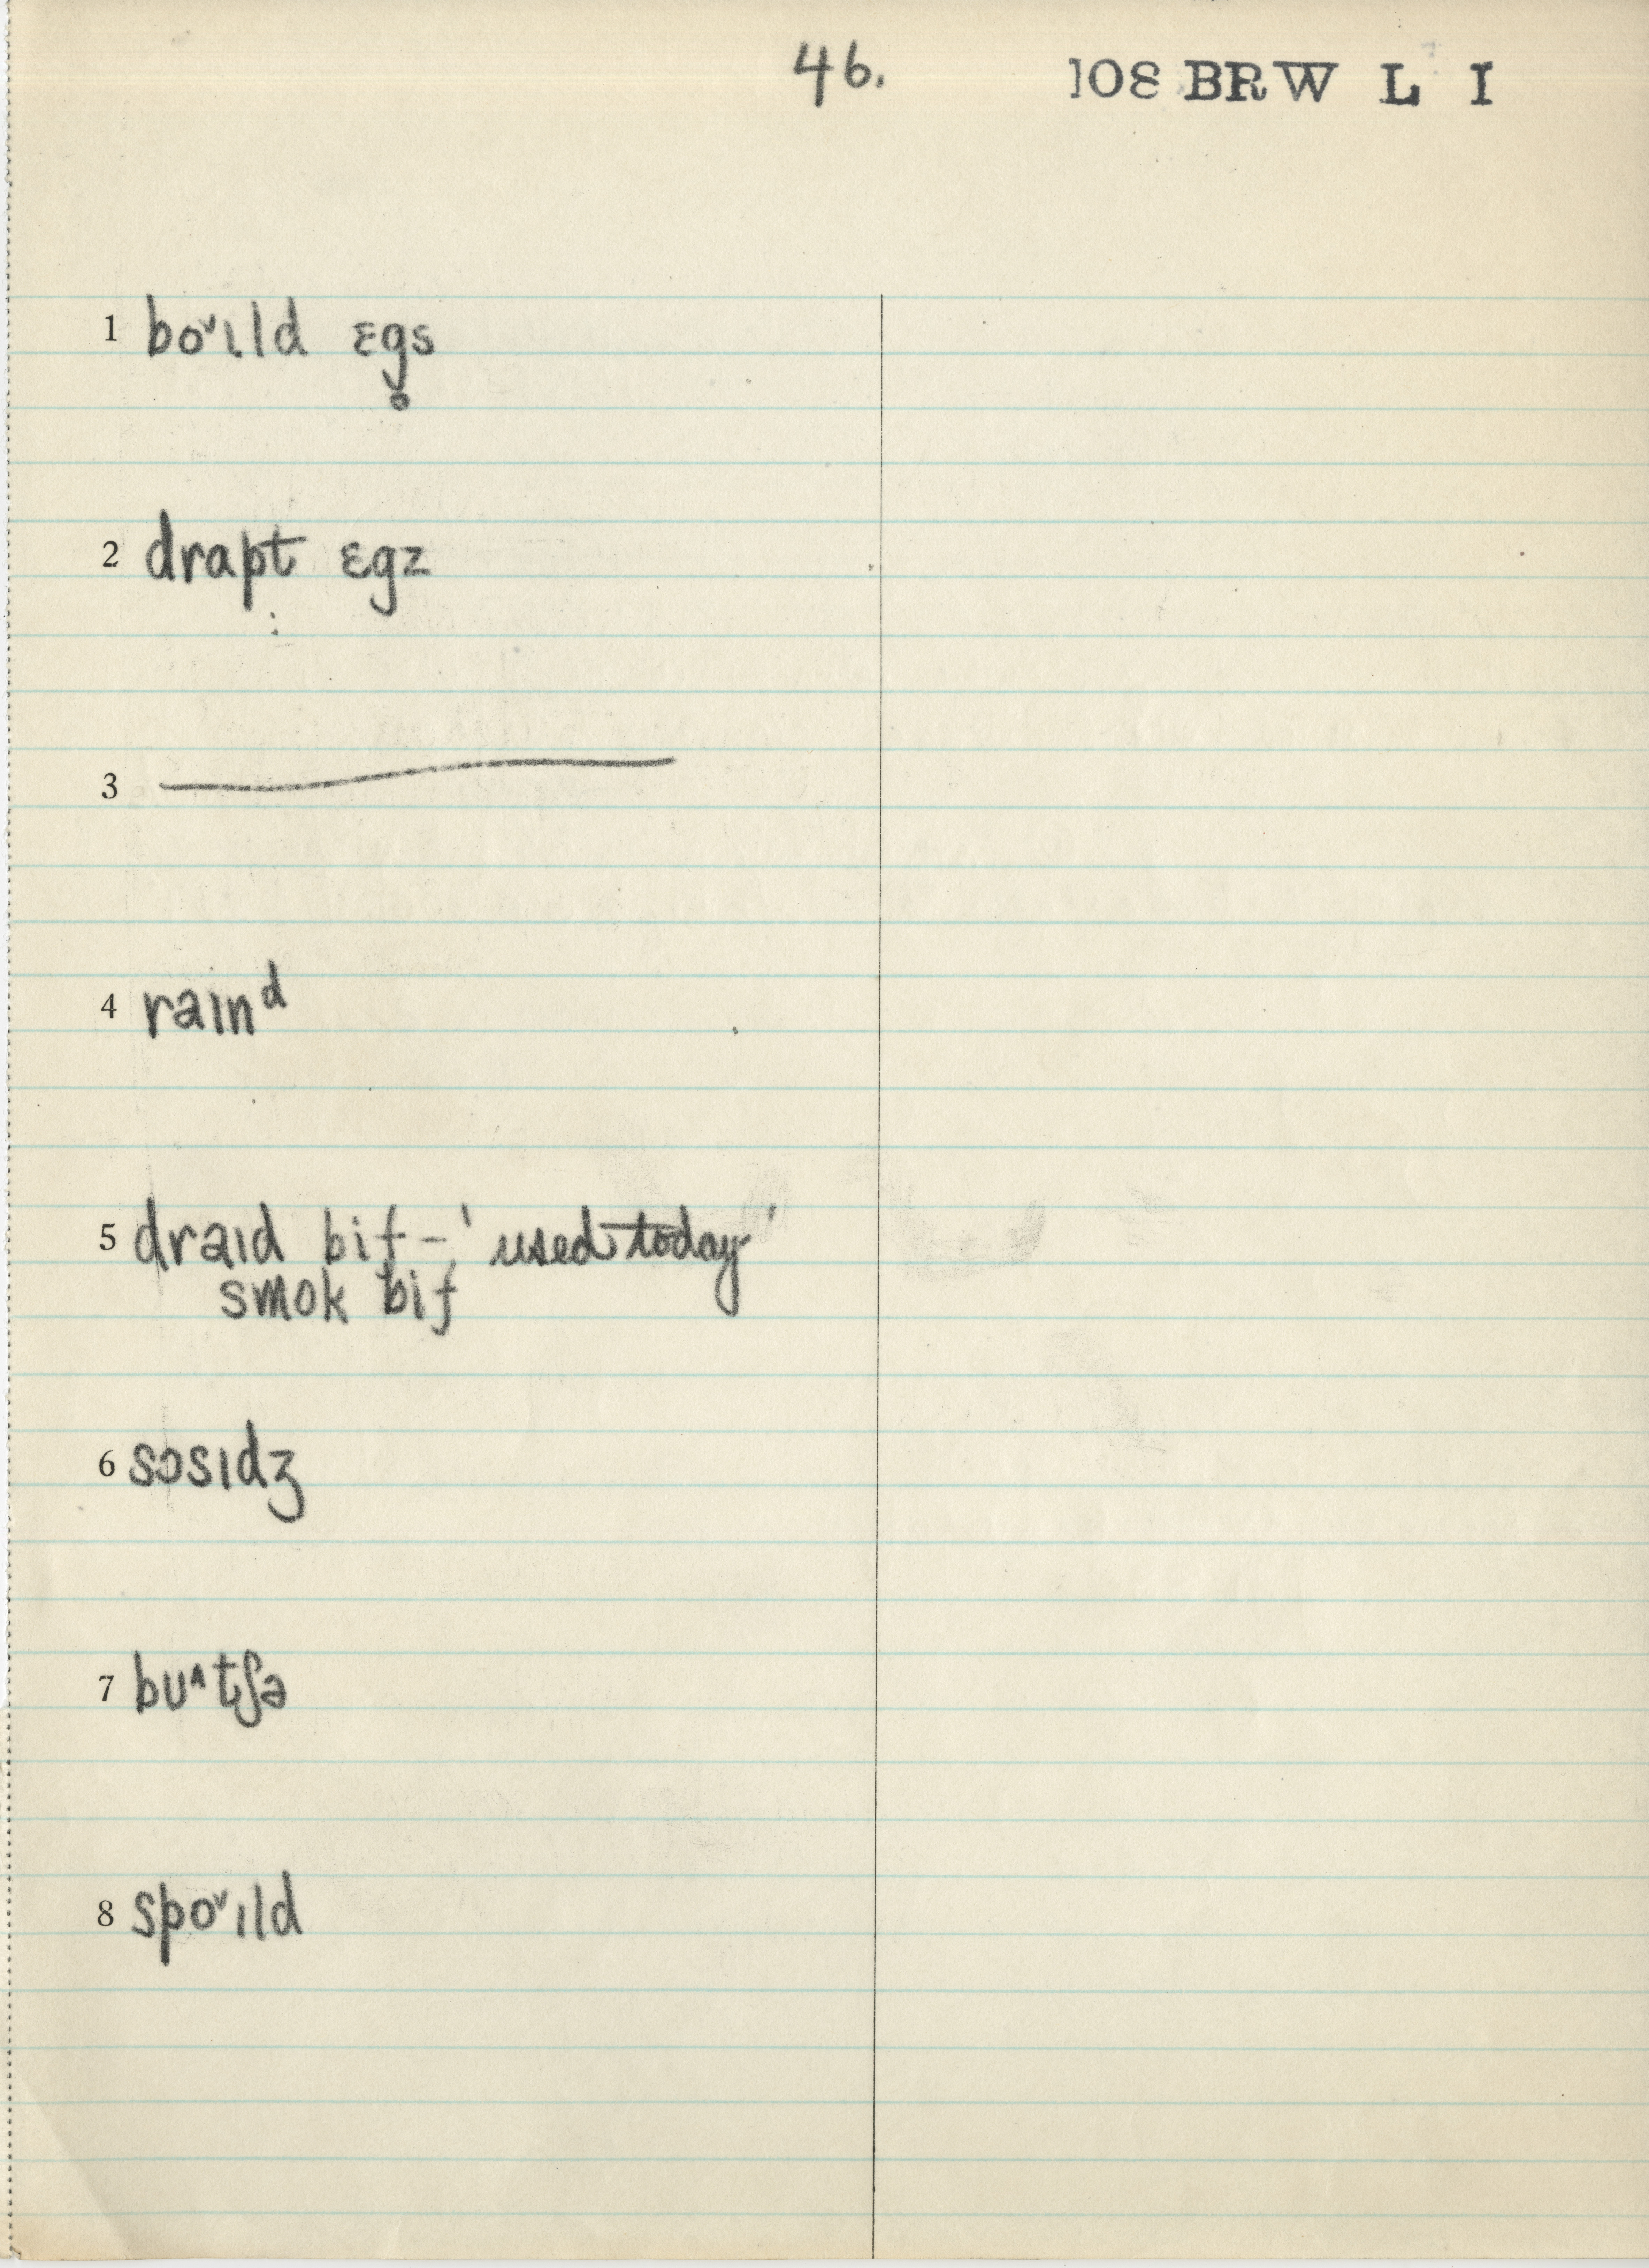 46. 108 BRW L I
1 bo˅ɪld ɛg̥s
2 drapt ɛgz
3
4 raɪnᵈ
5 draɪd bif - 'used today'
smok bif
6 sɔsɪdʒ
7 bu^tʃə
8 spo˅ɪld